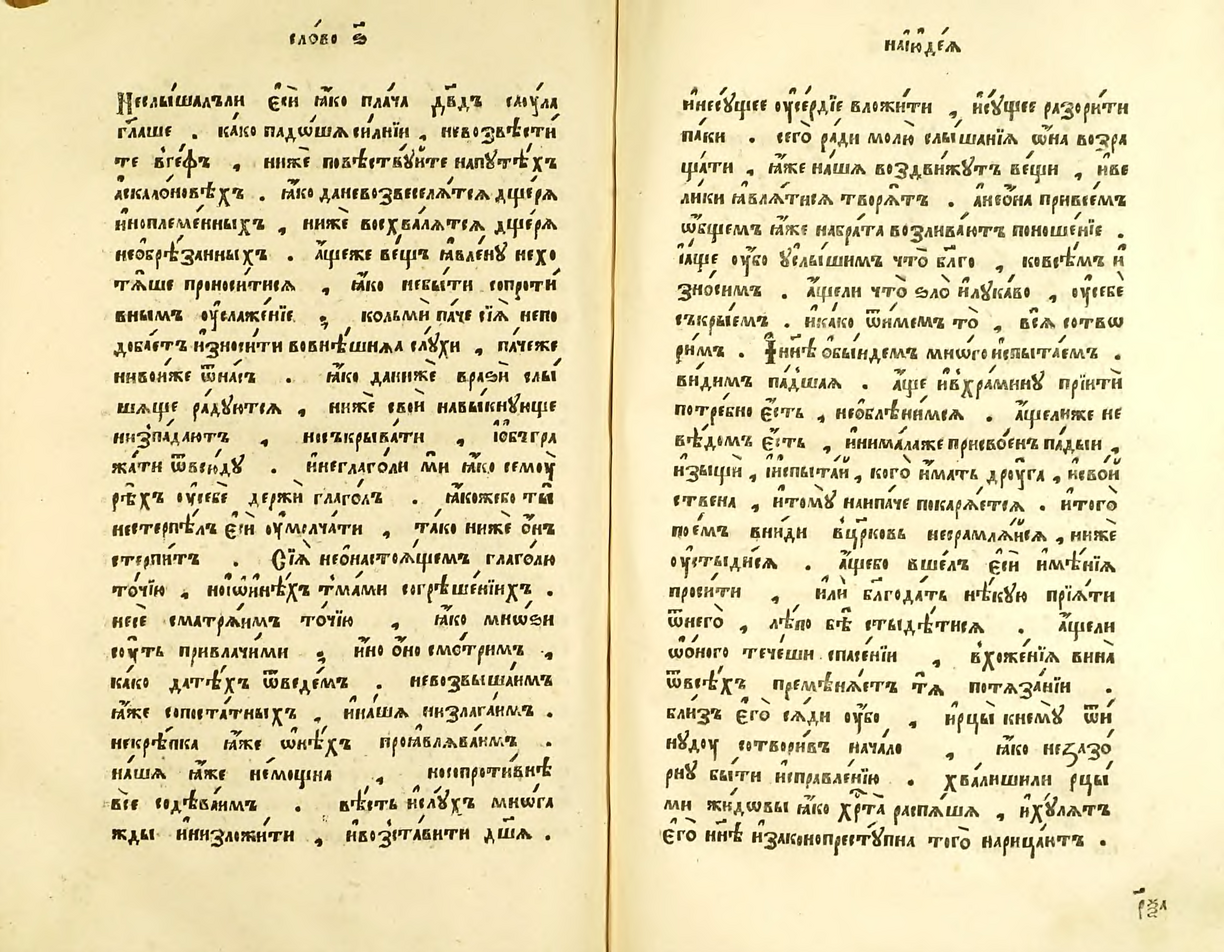 сло́во ѕ҃
Неслы́шалъли є҆сѝ ꙗ҆́ко пла́ча дв҃дъ саꙋ́ла
гл҃аше . ка́ко падѡ́шѧ си́лнїи , невозвѣсти́
те вге́ѳъ , нижѐ повѣ́ствꙋйте напꙋте́хъ
а҆скало́новѣхъ . ꙗ҆́ко даневозвеселѧ́тсѧ дще́рѧ
и҆ноплеме́нныхъ , нижѐ восхва́лѧтсѧ дще́рѧ
необрѣ́занныхъ . а҆́щеже ве́щь ꙗ҆вле́нꙋ нехо
тѧ́ше проноси́тисѧ , ꙗ҆́ко небы́ти сопроти́
внымъ оу҆слажє́нїе , кольмѝ па́че сїѧ̀ непо
доба́етъ и҆зноси́ти вовнѣ́шнѧа слꙋ́хи , па́чеже
нивои҆́же ѿна́съ . ꙗ҆́ко данижѐ вразѝ слы́
шѧще ра́дꙋютсѧ , нижѐ своѝ навы́кнꙋвше
низпа́даютъ , носъкрыва́ти , и҆ѡбъгра
жа́ти ѿвсю́дꙋ . и҆неглаго́ли мѝ ꙗ҆́ко семоу̀
рѣ́хъ оу҆себѐ держѝ глаго́лъ . ꙗ҆́кожебо ты̀
нестерпѣ́лъ є҆сѝ оу҆молча́ти , та́ко нижѐ ѻ҆́нъ
сте́рпитъ . Сїѧ̀ неѻ҆настоѧ́щемъ глаго́лю
то́чїю , ноиѡ҆и҆нѣ́хъ тма́ми согрѣше́нїихъ .
несѐ сматрѧ́имъ то́чїю , ꙗ҆́ко мнѡ́зи
сꙋ́ть привлачи́ми , и҆но ѻ҆́но смо́тримъ ,
ка́ко да тѣ́хъ ѿведе́мъ . невозвыша́имъ
ꙗ҆́же сопоста́тныхъ , и҆на́шѧ низлага́имъ .
некрѣ́пка ꙗ҆́же ѡ҆нѣ́хъ проꙗвлѧва́имъ .
на́шѧ ꙗ҆́же не́мощна , носопроти́внѣ
всѐ содѣва́имъ . вѣ́сть и҆слꙋ́хъ мнѡ́га
жды и҆низложи́ти , и҆воз̾ста́вити дш҃ѧ .
наїю҆де́ѧ
и҆несꙋ́щее оу҆се́рдїе вложи́ти , и҆сꙋ́щее разори́ти
па́ки . сего̀ ра́ди молю̀ слы́шанїѧ ѡ҆́на возра
ща́ти , ꙗ҆́же на́шѧ воздви́жꙋтъ ве́щи , и҆ве
ли́ки ꙗ҆влѧ́тисѧ творѧ́тъ . а҆неѻ҆́на при всемъ
ѻ҆́бщемъ ꙗ҆́же набра́та возлива́ютъ поноше́нїе .
і҆а҆́ще оу҆́бо оу҆слы́шимъ что̀ бл҃го , ковсѣ́мъ и҆
зно́симъ . а҆́щели что̀ ѕло̀ и҆лꙋка́во , оу҆себѐ
съкры́емъ . и҆ка́ко ѿи́мемъ то̀ , всѧ̀ сотвѡ
ри́мъ . І҆нн҃ѣ ѡ҆бы́идемъ мно́го и҆спыта́емъ .
ви́димъ па́дшаѧ . а҆́ще и҆вхра́минꙋ прїитѝ
потре́бно є҆́сть , необлѣни́мсѧ . а҆́щелиже не
вѣ́домъ є҆́сть , и҆нима́лаже присвое́нъ па́дыи ,
и҆зыщѝ , и҆и҆спыта́й , кого̀ и҆́мать дрꙋ́га , и҆свой
ствена , и҆томꙋ̀ наипа́че покарѧ́етсѧ . и҆того̀
пое́мъ вни́ди вцр҃ковь несрамлѧ́йсѧ , нижѐ
оу҆стыди́сѧ . а҆́щебо вше́лъ є҆сѝ и҆мѣ́нїѧ
проси́ти , и҆лѝ бл҃года́ть нѣ́кꙋю прїѧ́ти
ѿнего̀ , лѣ́по бѣ̀ стыдѣ́тисѧ . а҆́щели
ѡ҆о҆́ного тече́ши спасе́нїи , вхоже́нїѧ вина̀
ѿвсѣ́хъ премѣнѧ́етъ тѧ̀ потѧза́нїи .
близъ є҆го̀ сѧ́ди оу҆́бо , и҆рцы̀ кнемꙋ̀ ѿи
нꙋ́доу сотвори́въ нача́ло , ꙗ҆́ко неꙁазо́
рнꙋ бы́ти и҆справле́нїю . хва́лишили рцы́
ми жидѡвы ꙗ҆́ко хрⷭ҇та распѧ́шѧ , и҆хꙋ́лѧтъ
є҆го̀ нн҃ѣ и҆законопрестꙋ́пна того̀ нарица́ютъ .
рѯ҃а